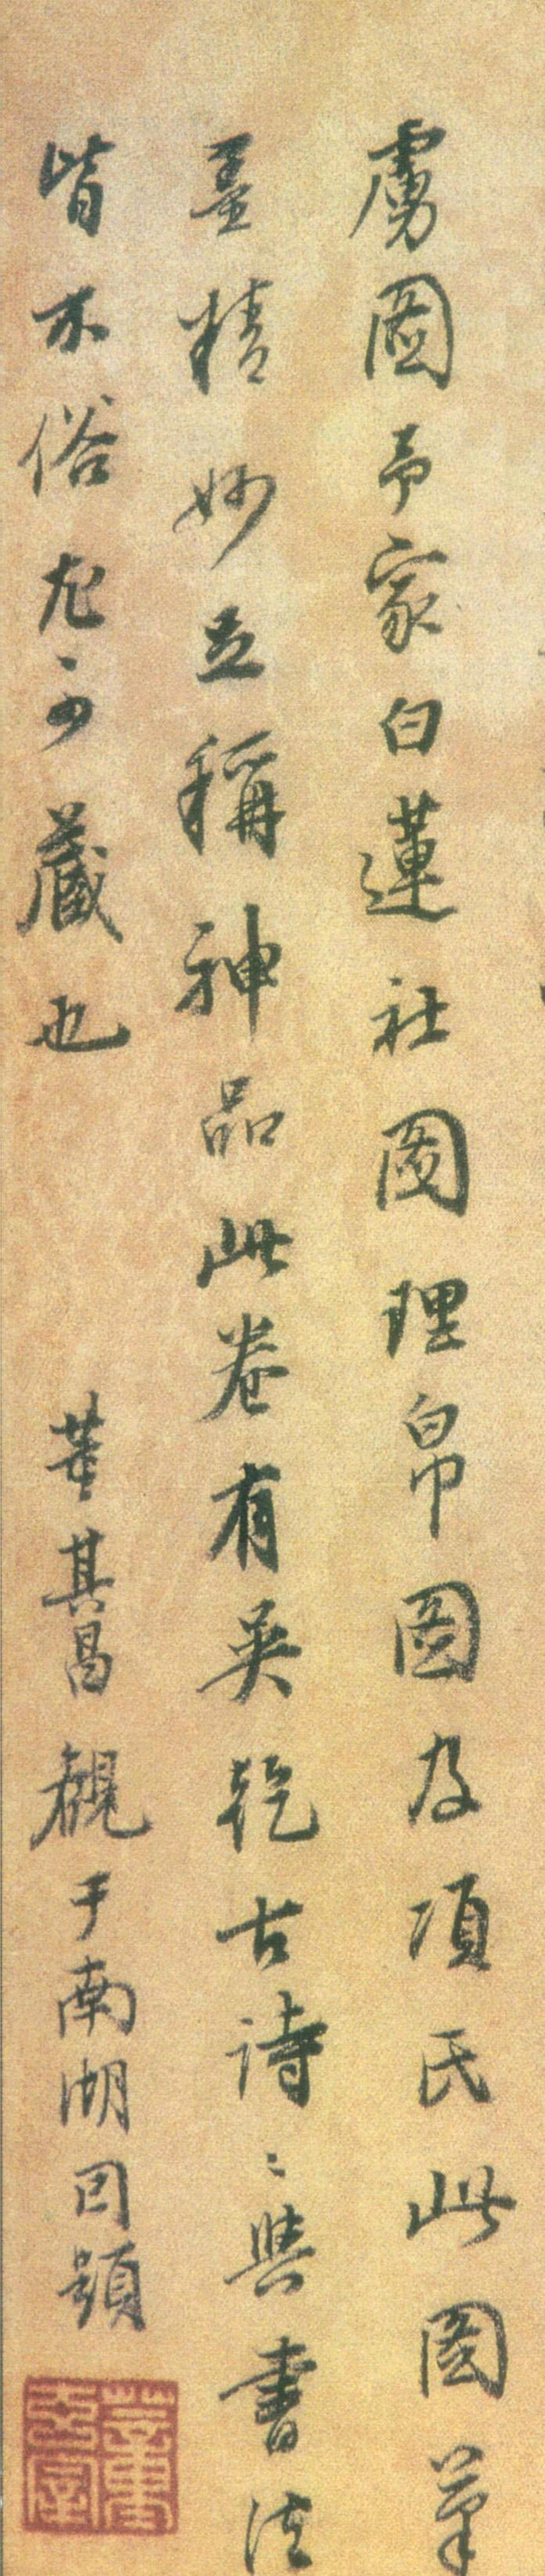 虜圖予家白蓮社圖理帛圖及項氏此圖筆
墨精妙並稱神品此卷有吳說古詩〻與書法
皆不俗尤可藏也 董其昌觀于南湖因題